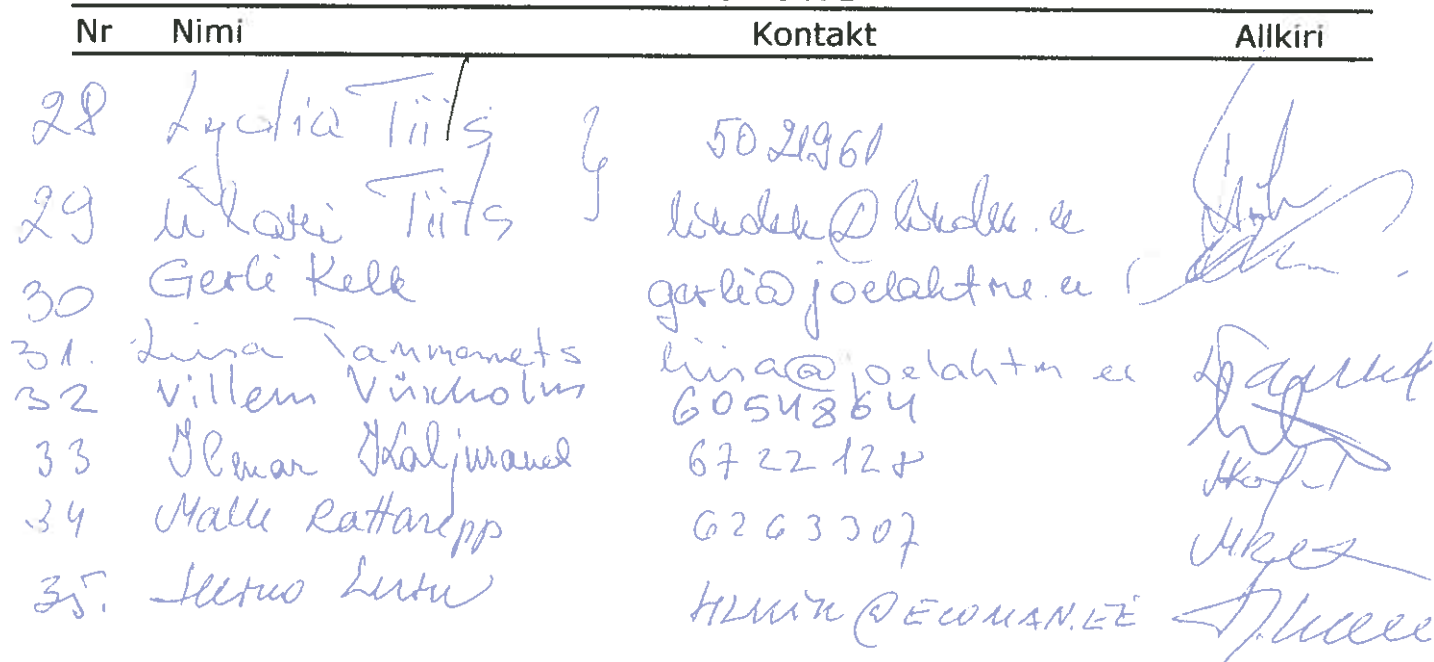 Nr Nimi Kontakt Allkiri
28 Lydia Tiits 5021961
29 Ülari Tiits
30 Gerli Kelk gerli@joelahtme.ee
31. Liisa Tammemets liisa@joelahtm ee
32 Villem Vürkholm 6054864
33 Ilmar Kaljurand 6722128
34 Malle Rattasepp 6263307
35. @ECOMAN.EE